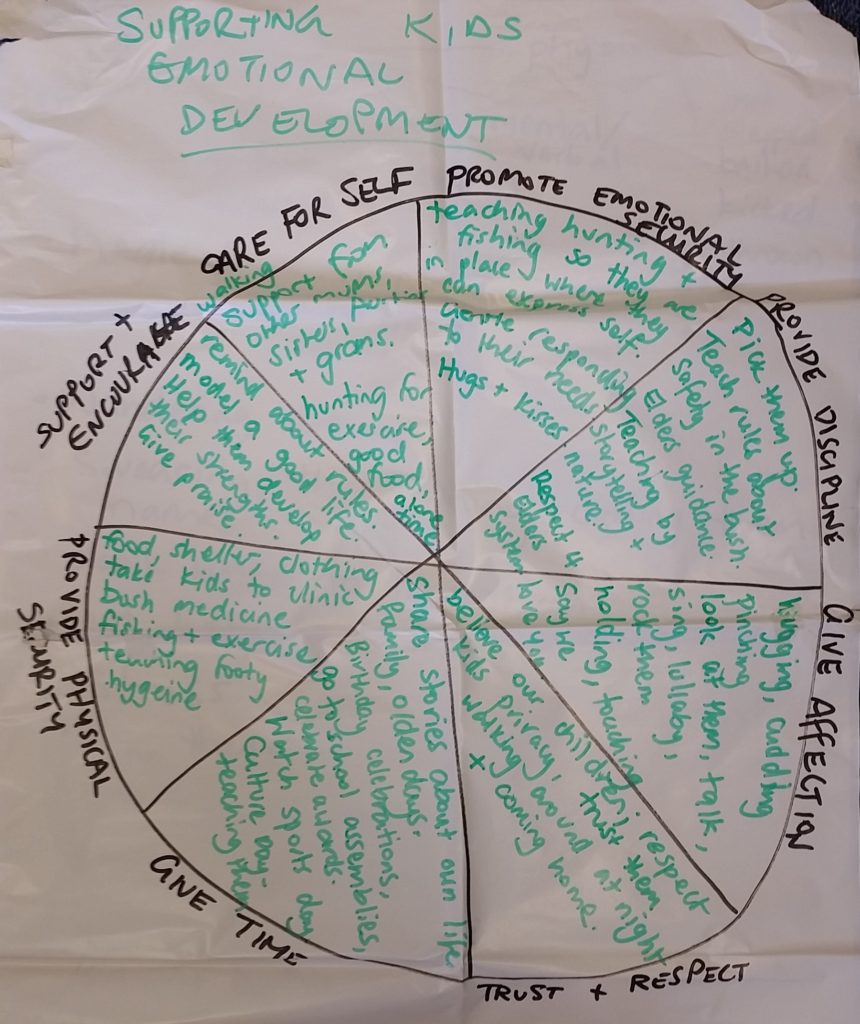 SUPPORTING KIDS
EMOTIONAL
DEVELOPMENT
PROMOTE EMOTIONAL
SECURITY
teaching hunting +
fishing so they are
in place where they
can express self.
Gentle responding
to their needs
Hugs + kisses
Teaching by
storytelling +
nature.
PROVIDE DISCIPLINE
Pick them up.
Teach rules about
safety in the bush.
Elders guidance.
Respect 4
Elders
System
GIVE AFFECTION
hugging, cuddling
pinching
look at them, talk,
sing, lullaby,
rock them
holding, touching
Say we
love you
TRUST + RESPECT
believe our children, respect
privacy, trust them
kids walking around at night
x coming home.
GIVE TIME
Share stories about own life
family, olden days.
Birthday celebrations,
go to school assemblies,
celebrate awards.
Watch sports day
Culture day-
teaching them
PROVIDE PHYSICAL
SECURITY
food, shelter, clothing
take kids to clinic
bush medicine
fishing + exercise
footy
hygeine
SUPPORT +
ENCOURAGE
remind about rules.
model a good life.
Help them develop
their strengths.
Give praise.
CARE FOR SELF
walking
Support from
other mums,
sisters,
+ grans.
hunting for
exercise,
good
food,
alone
time